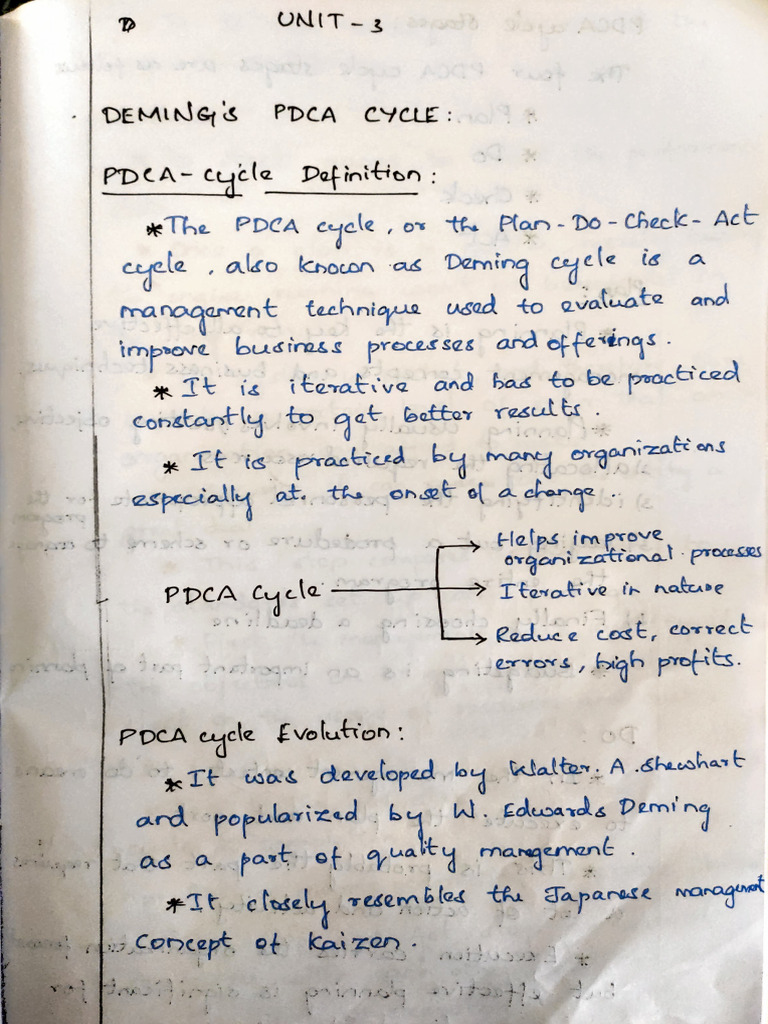 UNIT - 3
DEMING'S PDCA CYCLE:
PDCA-cycle Definition:
*The PDCA cycle, or the Plan-Do-Check-Act
cycle, also known as Deming cycle is a
management technique used to evaluate and
improve business processes and offerings.
* It is iterative and has to be practiced
constantly to get better results.
* It is practiced by many organizations
especially at. the onset of a change.
Helps improve
organizational processes
PDCA Cycle → Iterative in nature
Reduce cost, correct
errors, high profits.
PDCA cycle Evolution:
*It was developed by Walter. A. Shewhart
and popularized by W. Edwards Deming
as a part of quality management.
*It closely resembles the Japanese management
concept of Kaizen.